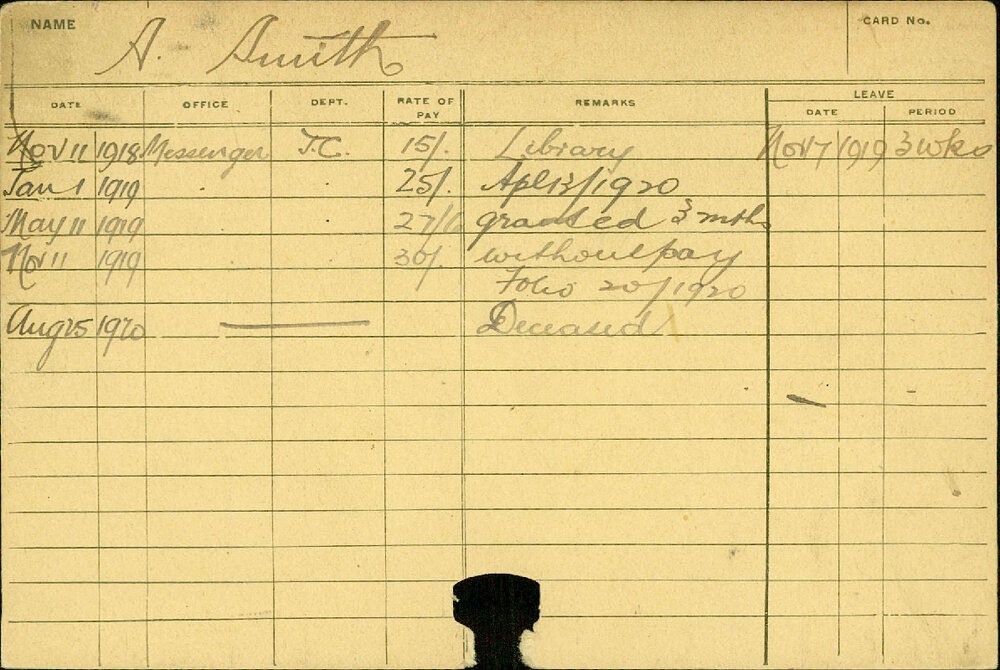 NAME CARD No.
A. Smith
DATE OFFICE DEPT. RATE OF PAY REMARKS LEAVE
DATE PERIOD
Nov 11 1918 Messenger T.C. 15/. Library Nov 7 1919 3 wks
Jan 1 1919 25/. Apl 13/1920
May 11 1919 27/6 granted 3 mths
Nov 11 1919 30/. without pay
Folio 20/1920
Aug 25 1920 Deceased